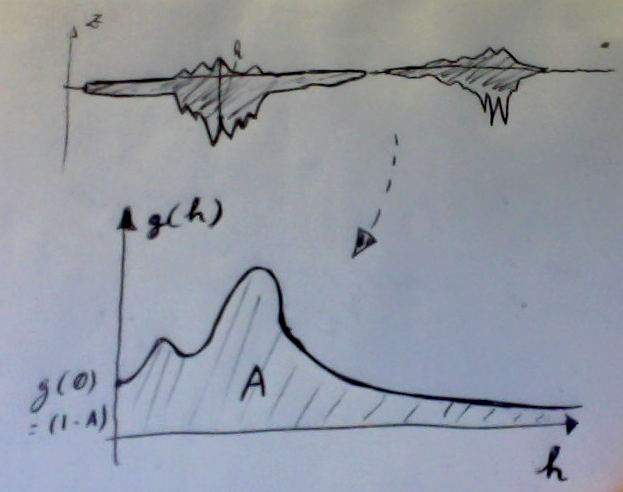 z
h
g(h)
A
g(0)
= (1-A)
h